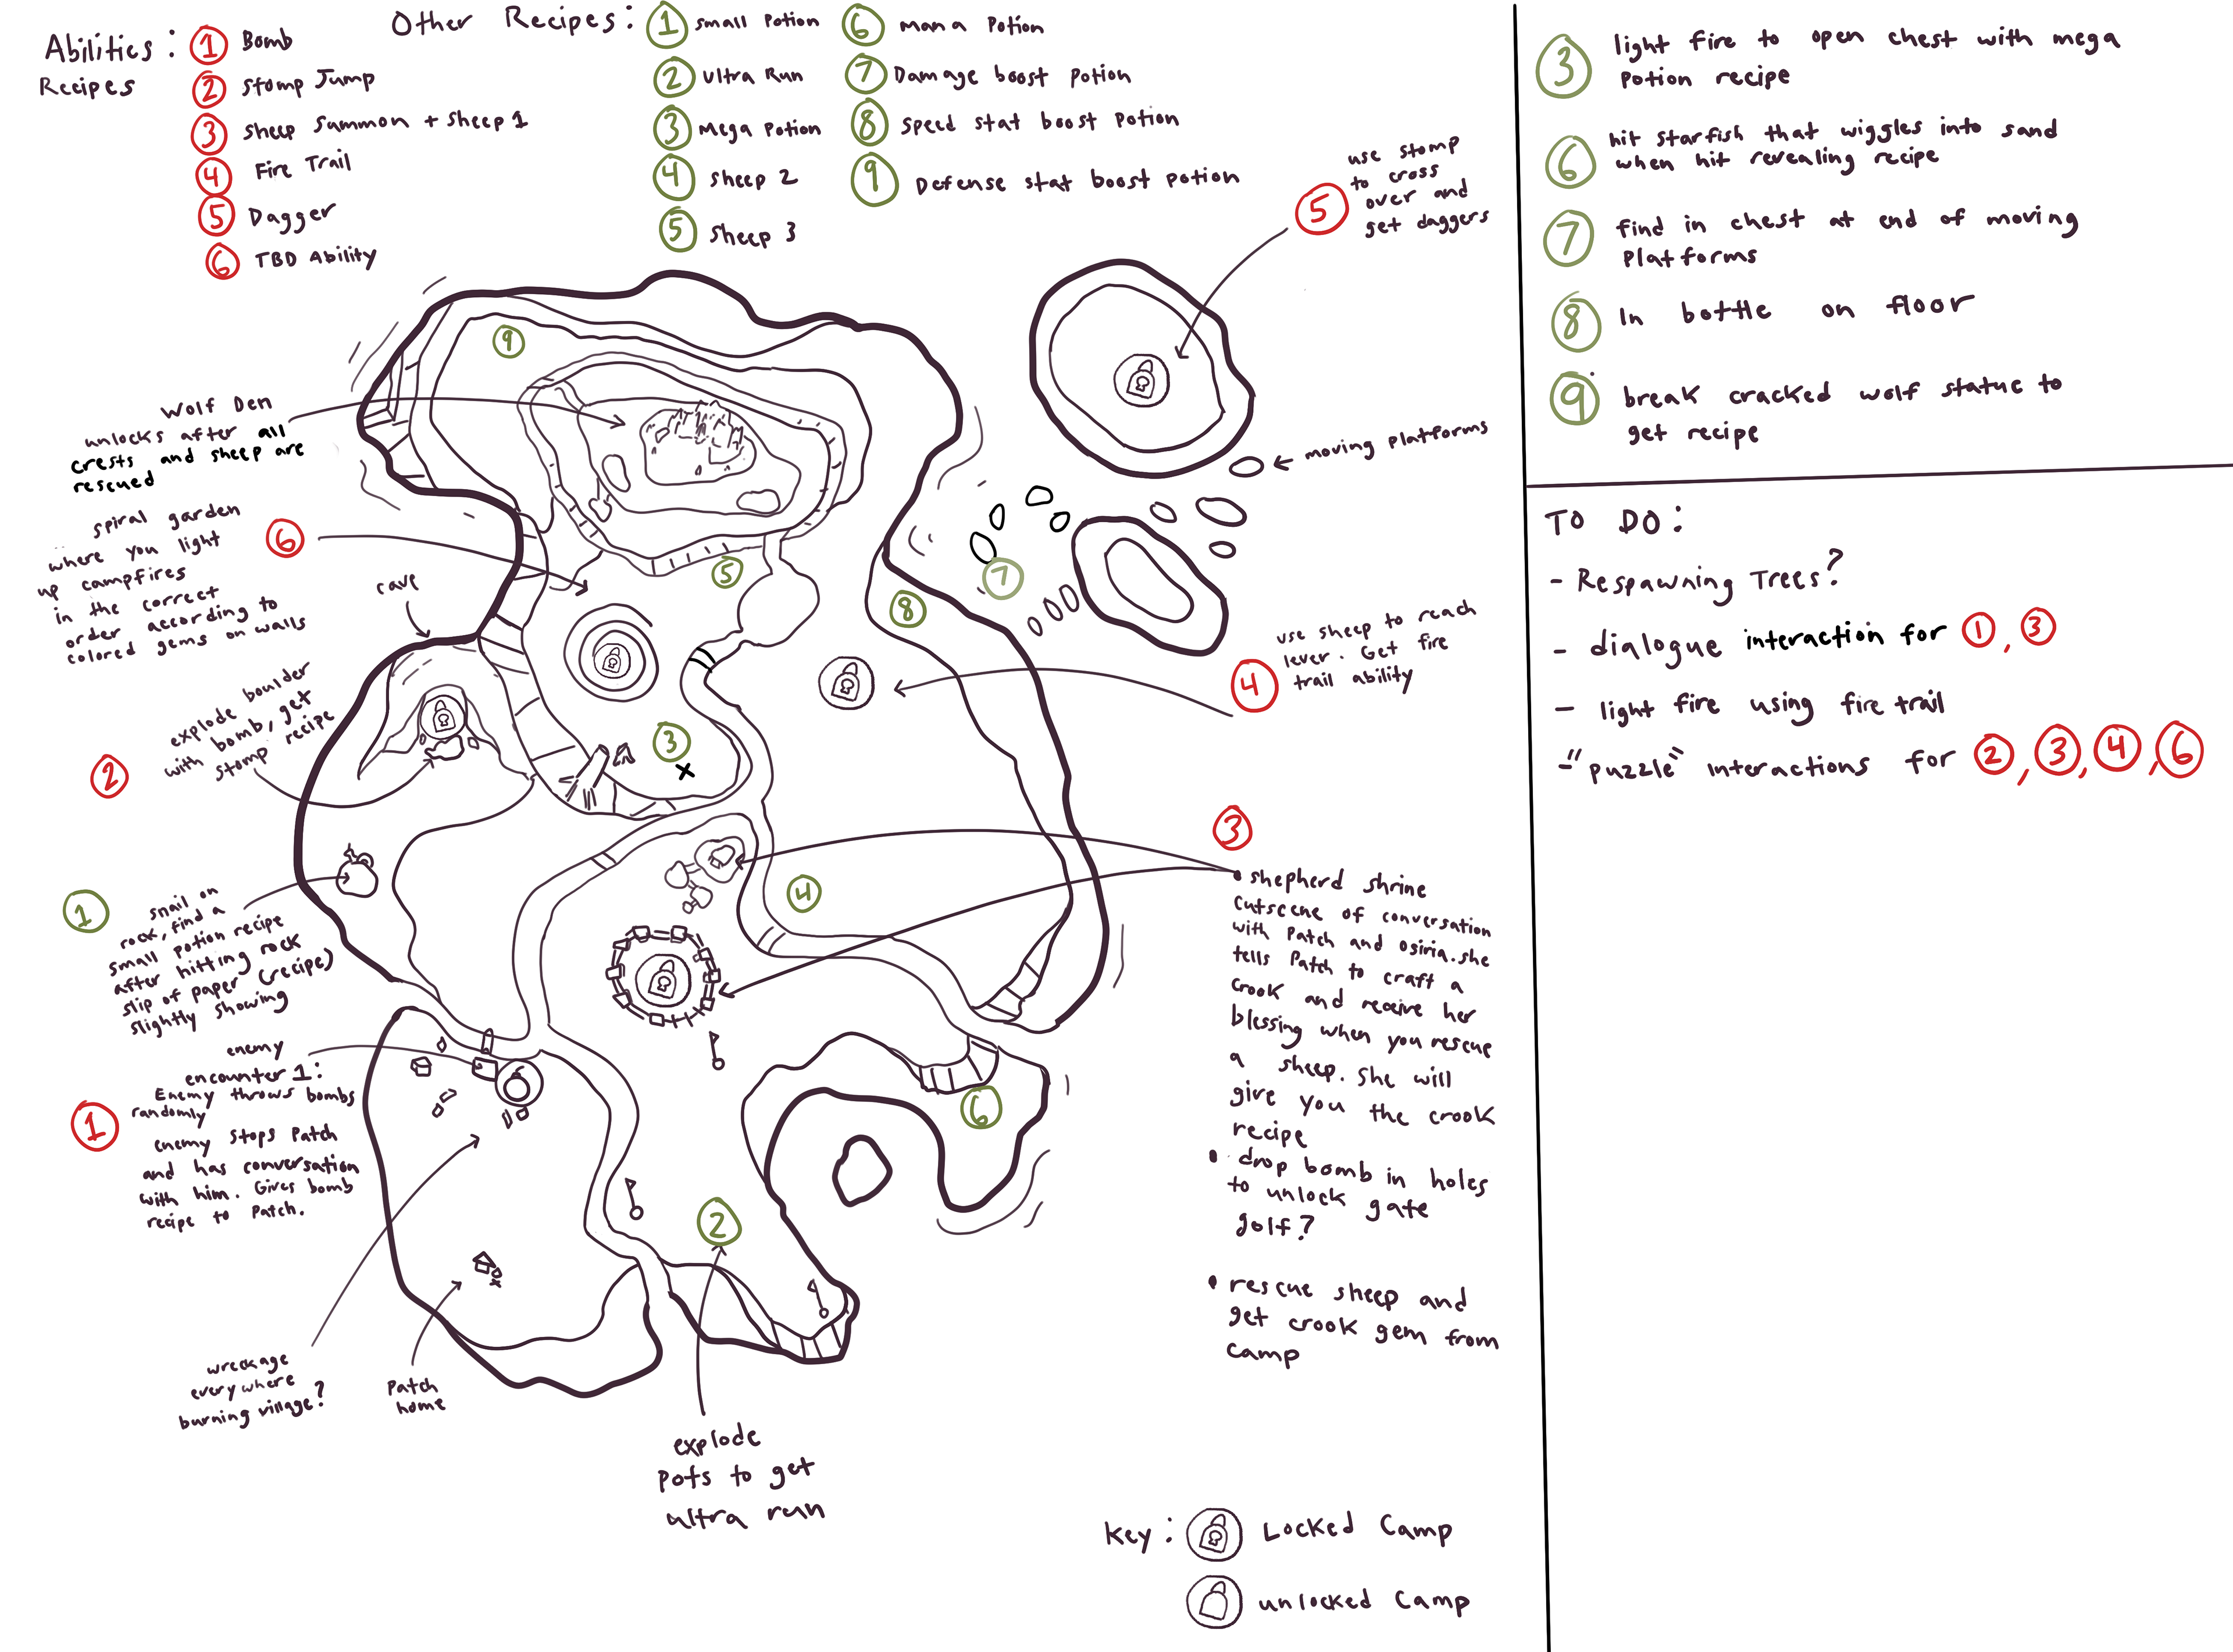 Abilities:
Recipes
1 Bomb
2 Stomp Jump
3 Sheep Summon + Sheep 1
4 Fire Trail
5 Dagger
6 TBD Ability
Other Recipes:
1 small Potion
2 Ultra Run
3 Mega Potion
4 Sheep 2
5 Sheep 3
6 mana Potion
7 Damage boost Potion
8 Speed stat boost Potion
9 Defense stat boost Potion
5
use stomp
to cross
over and
get daggers
moving platforms
9
Wolf Den
unlocks after all
crests and sheep are
rescued
6
spiral garden
where you light
up campfires
in the correct
order according to
colored gems on walls
cave
5
7
8
4
use sheep to reach
lever. Get fire
trail ability
2
explode boulder
bomb, get
with stomp recipe
3
x
1
snail on
rock, find a
small potion recipe
after hitting rock
slip of paper (recipe)
slightly showing
4
3
shepherd shrine
cutscene of conversation
with Patch and Osiria. she
tells Patch to craft a
crook and receive her
blessing when you rescue
a sheep. She will
give you the crook
recipe
• drop bomb in holes
to unlock gate
golf?
• rescue sheep and
get crook gem from
camp
1
enemy
encounter 1:
Enemy throws bombs
randomly
enemy stops Patch
and has conversation
with him. Gives bomb
recipe to Patch.
6
2
wreckage
everywhere
burning village?
Patch
home
explode
Pots to get
ultra run
Key:
Locked Camp
unlocked Camp
3 light fire to open chest with mega
Potion recipe
6 hit starfish that wiggles into sand
when hit revealing recipe
7 find in chest at end of moving
Platforms
8 In bottle on floor
9 break cracked wolf statue to
get recipe
TO DO:
- Respawning Trees?
- dialogue interaction for 1, 3
- light fire using fire trail
- "puzzle" interactions for 2, 3, 4, 6